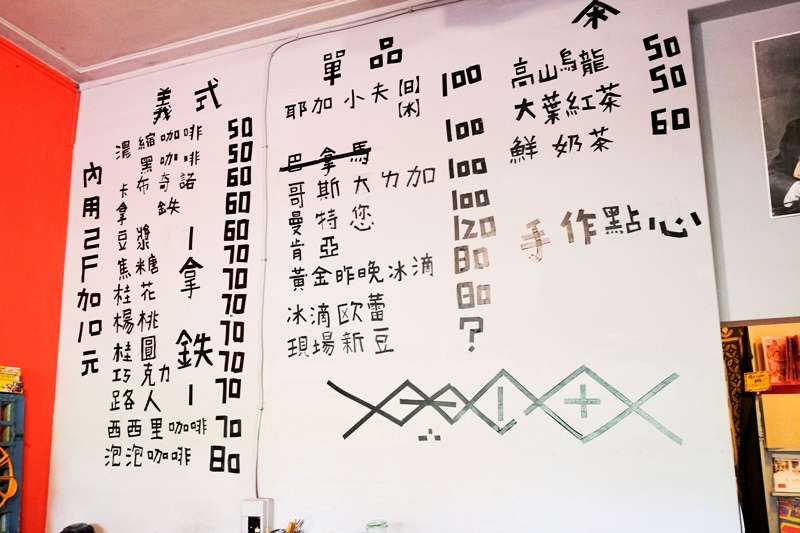 內用2F加10元
義式
濃縮咖啡 50
黑咖啡 50
卡布奇諾 60
拿鉄 60
豆漿 60
焦糖 70
桂花 70
楊桃 70
桂圓 70
巧克力 70
路人 70
|拿鉄|
西西里咖啡 70
泡泡咖啡 80
單品
耶加小夫【日】【水】 100
巴拿馬 100
哥斯大力加 100
曼特您 100
肯亞 120
黃金昨晚冰滴 80
冰滴歐蕾 80
現場新豆 ?
茶
高山烏龍 50
大葉紅茶 50
鮮奶茶 60
手作點心